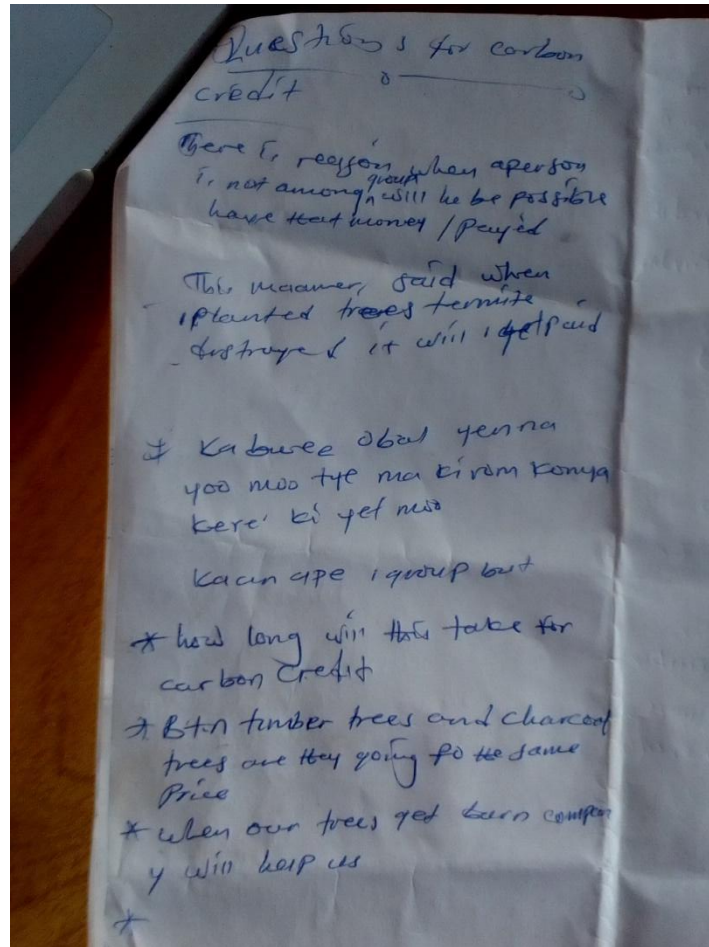 Questions for carbon
credit
There is reason when aperson
is not among group will he be possible
have that money / payed
This manner, said when
i planted trees termite
destroyed it will i get paid
* Ka buree obal yenna
yoo moo tye ma kirom konya
kere' ki yet moo
Kaan ape i group but
* how long will this take for
carbon credit
* Btn timber trees and charcoal
trees are they going to the same
Price
* when our trees get burn compan
y will help us
*